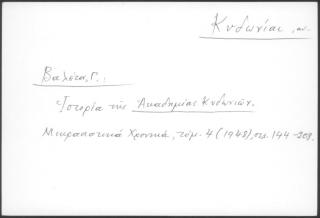 Κυδωνίαι, αι.
Βαλέτα, Γ.:
Ἱστορία τῆς Ἀκαδημίας Κυδωνιῶν.
Μικρασιατικά Χρονικά, τόμ. 4 (1948), σελ. 144-208.